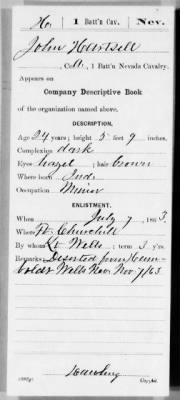 H. | 1 Batt'n Cav. | Nev.
John Hartsell
, Co. A, 1 Batt'n Nevada Cavalry.
Appears on
Company Descriptive Book
of the organization named above.
DESCRIPTION.
Age 24 years; height 5 feet 9 inches.
Complexion dark
Eyes hazel ; hair brown
Where born Ind.
Occupation Miner
ENLISTMENT.
When July 7 , 1863.
Where Ft. Churchill
By whom Lt. Wells ; term 3 y'rs.
Remarks: Deserted from Hum-
boldt Wells Nev. Nov. 7/63.
Copyist.